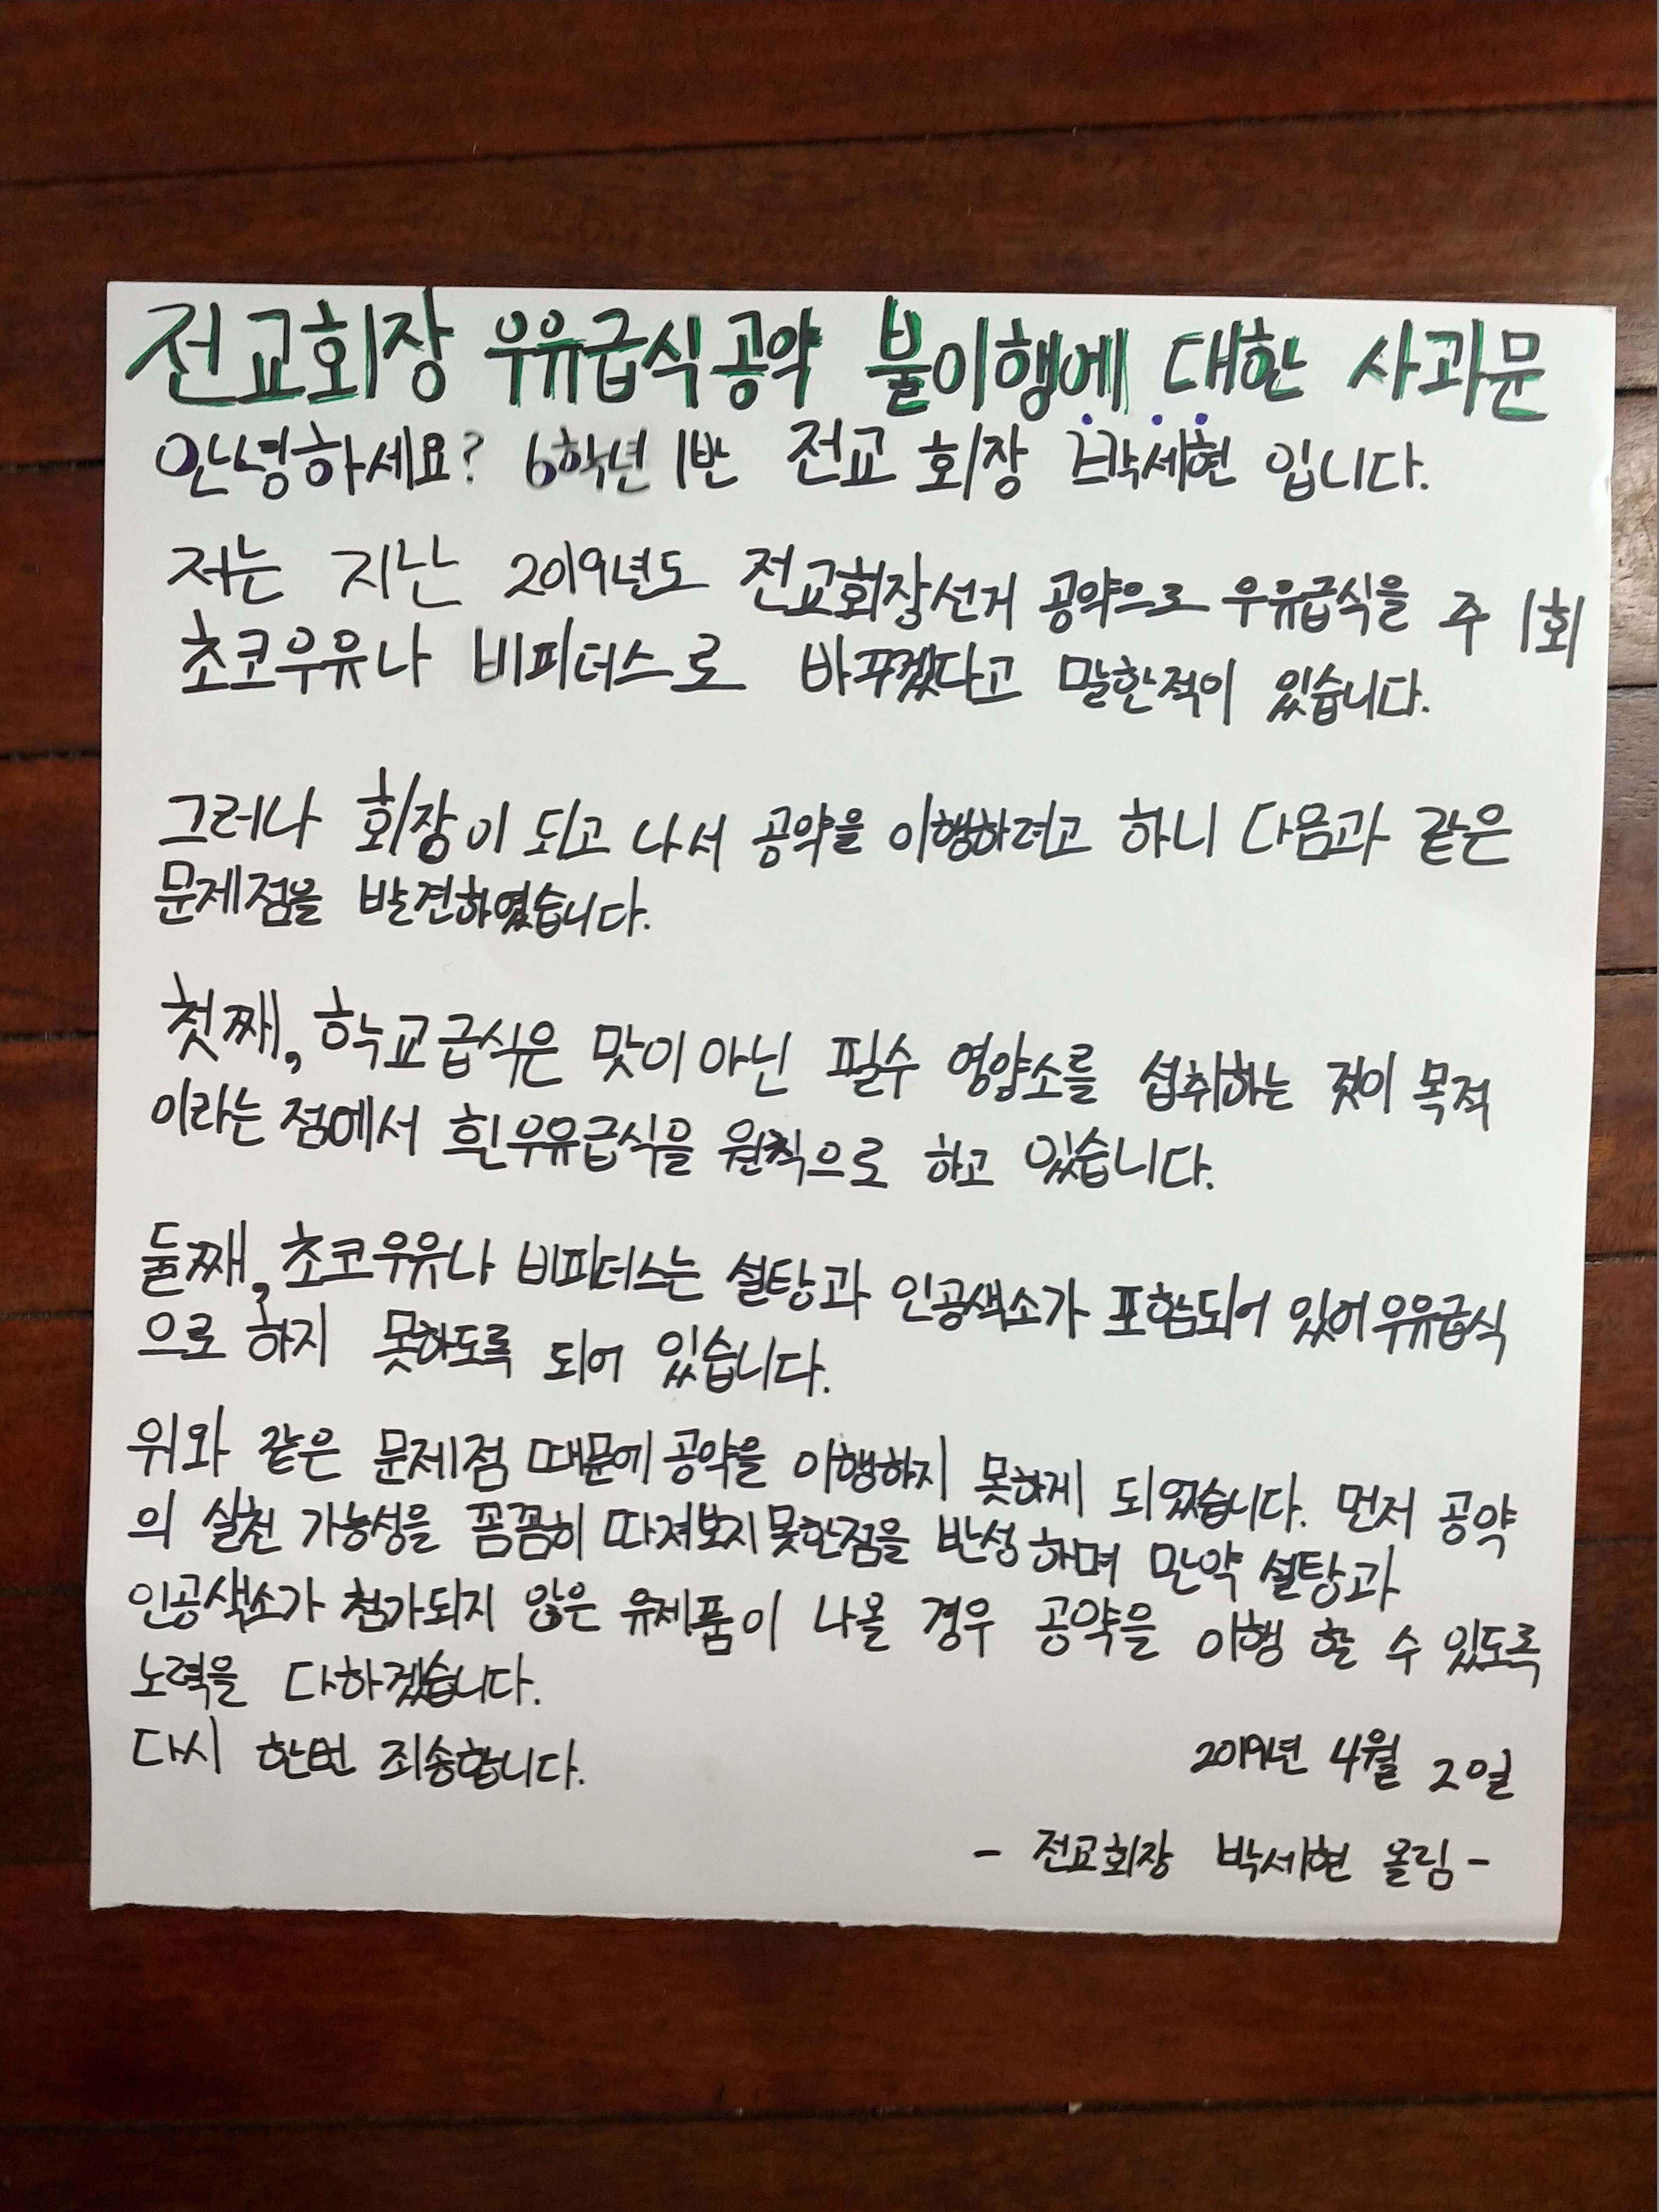 전교회장 우유급식공약 불이행에 대한 사과문
안녕하세요? 6학년 1반 전교 회장 박세현 입니다.
저는 지난 2019년도 전교회장선거 공약으로 우유급식을 주 1회
초코우유나 비피더스로 바꾸겠다고 말한적이 있습니다.
그러나 회장이 되고 나서 공약을 이행하려고 하니 다음과 같은
문제점을 발견하였습니다.
첫째, 학교급식은 맛이 아닌 필수 영양소를 섭취하는 것이 목적
이라는 점에서 흰우유급식을 원칙으로 하고 있습니다.
둘째, 초코우유나 비피더스는 설탕과 인공색소가 포함되어 있어 우유급식
으로 하지 못하도록 되어 있습니다.
위와 같은 문제점 때문에 공약을 이행하지 못하게 되었습니다. 먼저 공약
의 실천 가능성을 꼼꼼히 따져보지 못한점을 반성하며 만약 설탕과
인공색소가 첨가되지 않은 유제품이 나올 경우 공약을 이행 할 수 있도록
노력을 다하겠습니다.
다시 한번 죄송합니다.
2019년 4월 2일
- 전교회장 박세현 올림 -